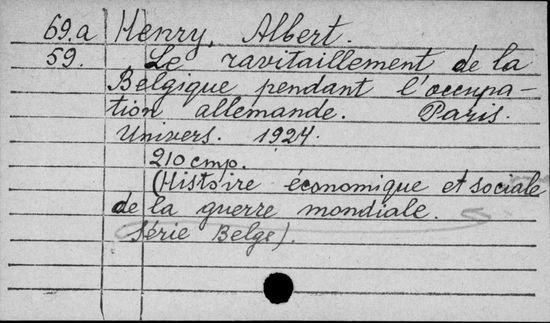 69.a Henry, Albert.
59. Le ravitaillement de la
Belgique pendant l'occupa-
tion allemande. Paris.
Univers. 1924.
210 стр.
(Histoire économique et sociale
de la guerre mondiale.
Série Belge).